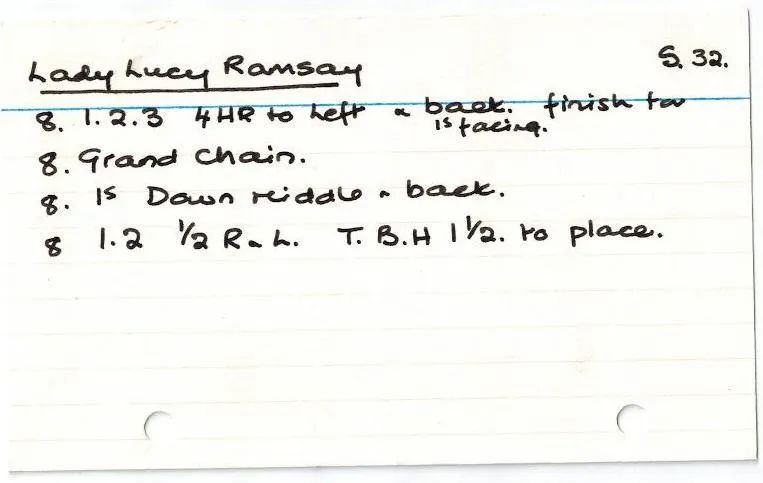 Lady Lucy Ramsay S. 32.
8. 1.2.3 4HR to Left & back. finish for
1s facing.
8. Grand Chain.
8. 1s Down middle & back.
8 1.2 ½ R & L. T.B.H 1½. to place.